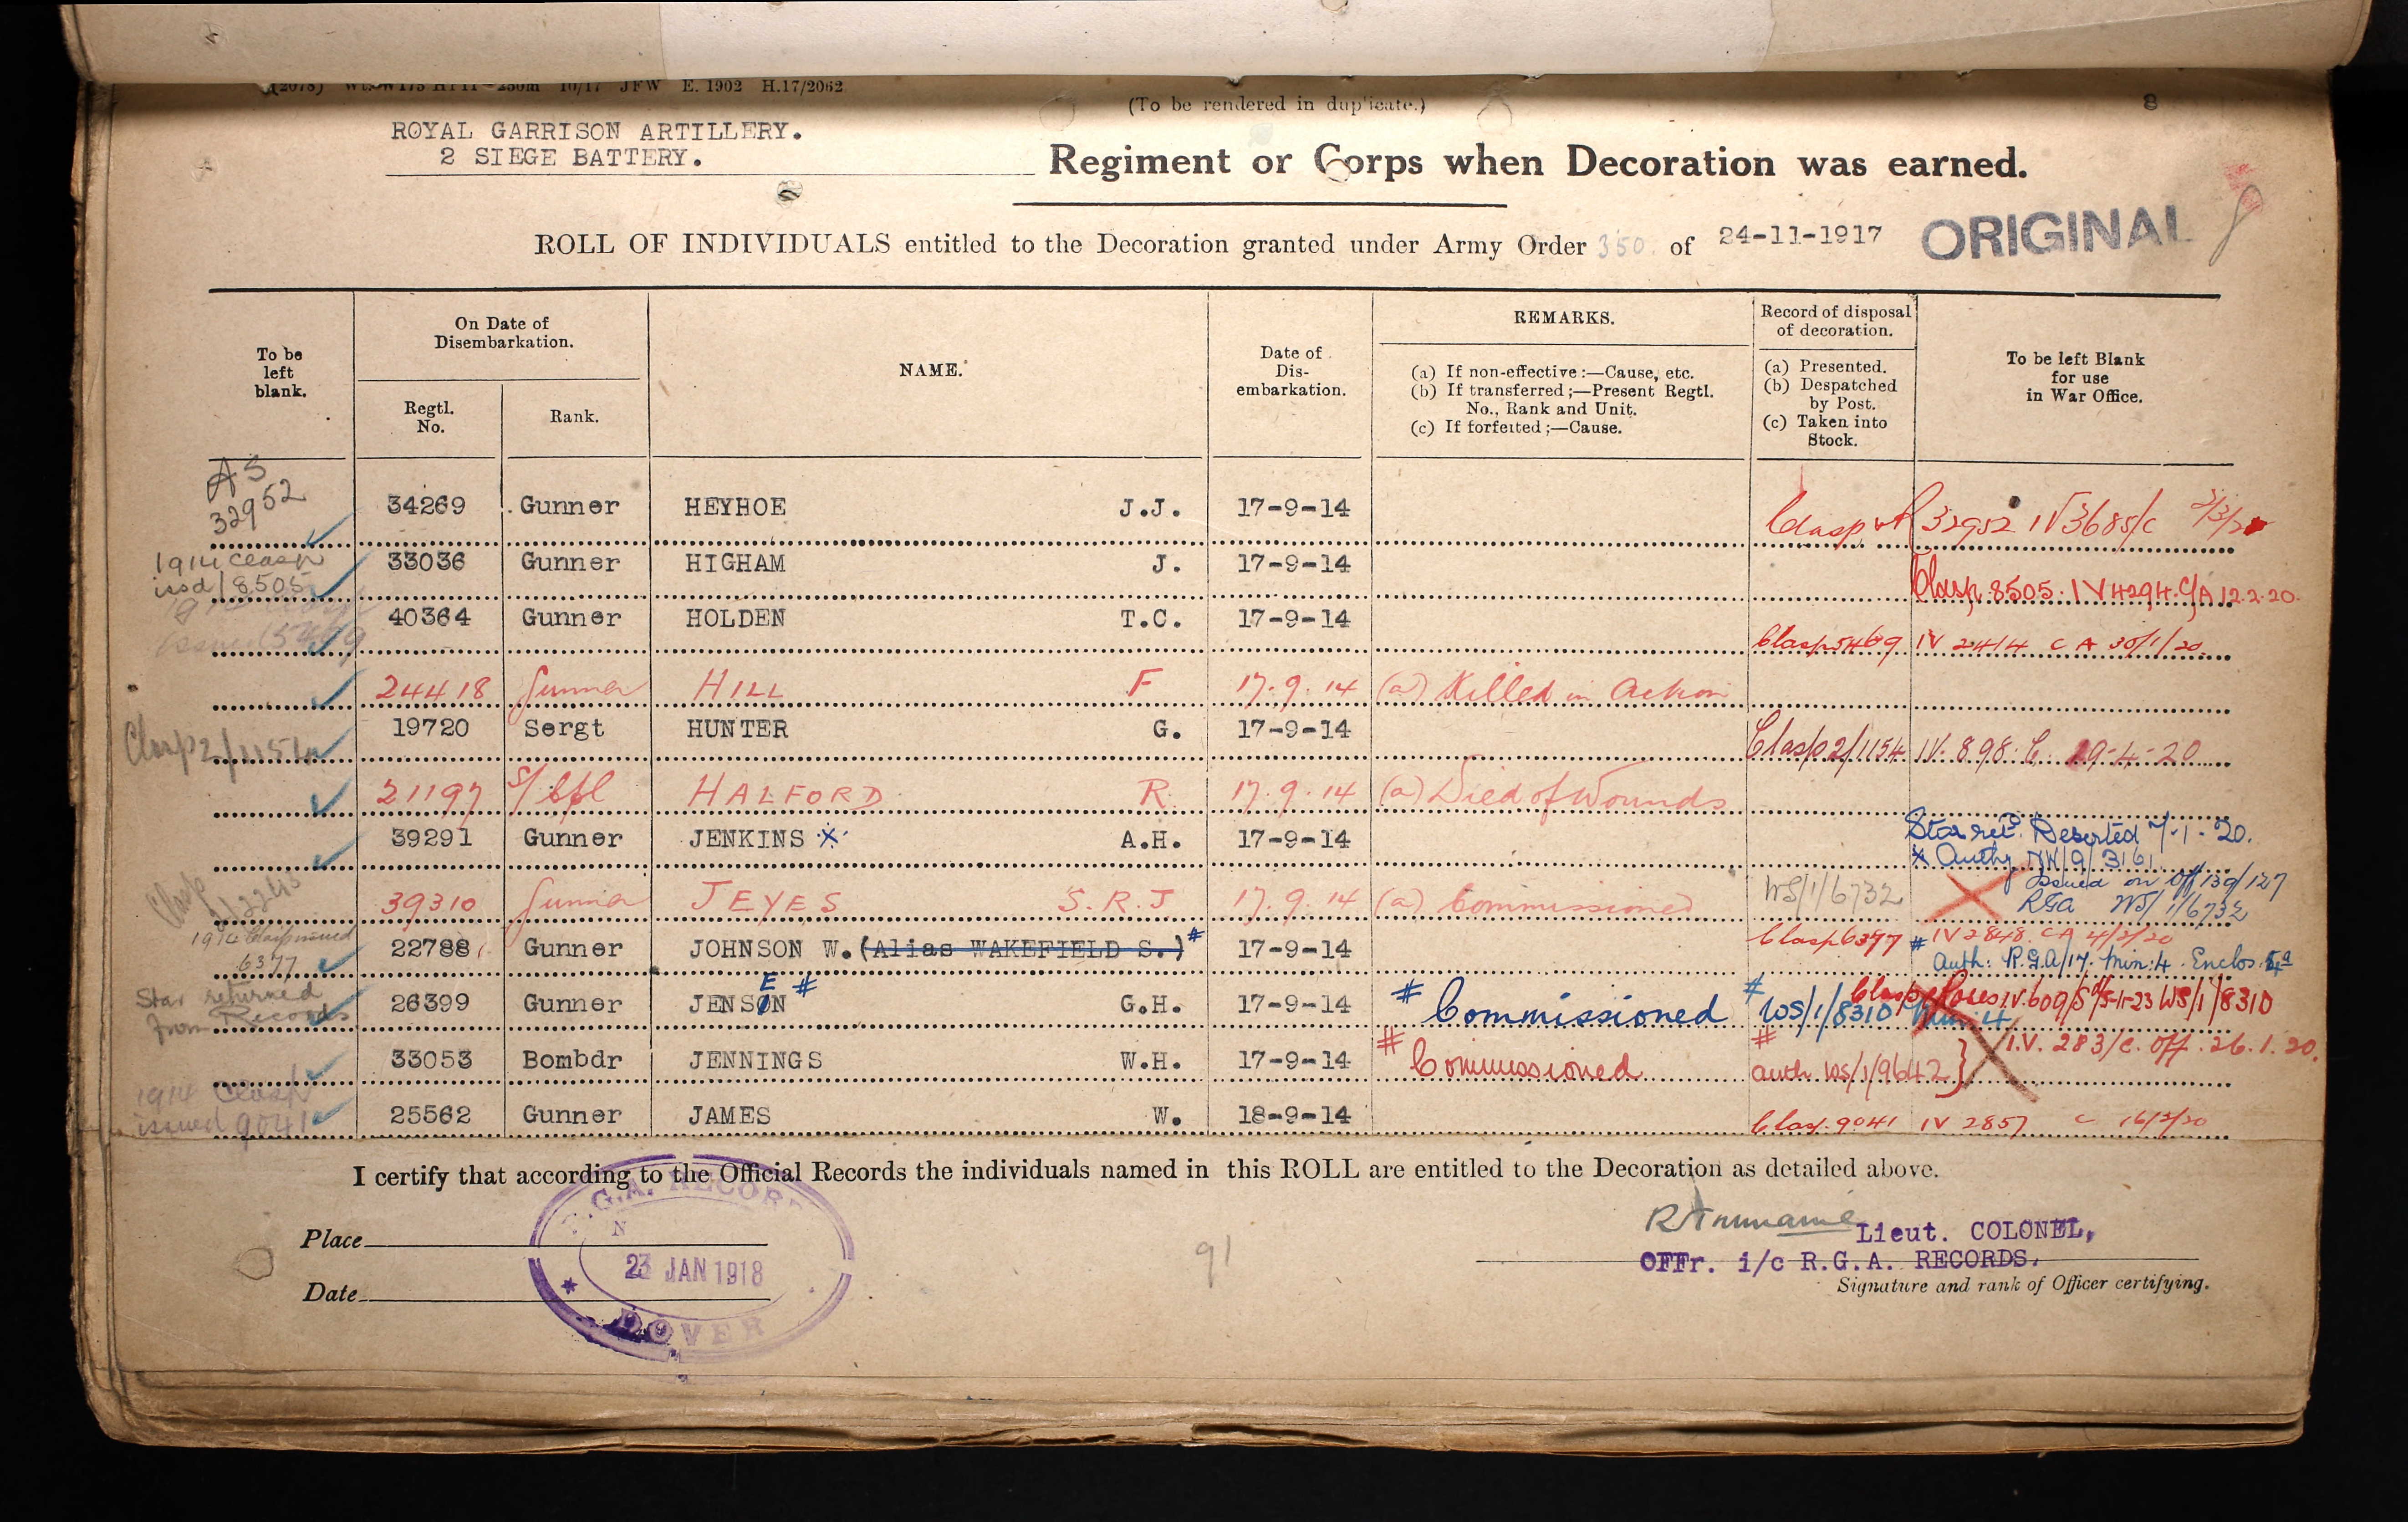 (2078) Wt. W175 H11 250m 10/17 JFW E. 1902 H.17/2062
(To be rendered in duplicate.)
8
ROYAL GARRISON ARTILLERY.
2 SIEGE BATTERY.
Regiment or Corps when Decoration was earned.
ROLL OF INDIVIDUALS entitled to the Decoration granted under Army Order 350. of 24-11-1917 ORIGINAL
To be left blank.
On Date of Disembarkation.
Regtl. No.
Rank.
NAME.
Date of Dis-embarkation.
REMARKS.
(a) If non-effective:—Cause, etc.
(b) If transferred;—Present Regtl. No., Rank and Unit.
(c) If forfeited;—Cause.
Record of disposal of decoration.
(a) Presented.
(b) Despatched by Post.
(c) Taken into Stock.
To be left Blank for use in War Office.
AS 32952 34269 Gunner HEYHOE J.J. 17-9-14 Clasp & R 32952 IV 3685/C 3/3/20
1914 Clasp issd/8505 33036 Gunner HIGHAM J. 17-9-14 Clasp 8505. IV 4294. C/A 12.2.20.
issued 5469 40364 Gunner HOLDEN T.C. 17-9-14 Clasp 5469 IV 2414 C A 30/1/20
24418 Gunner HILL F 17.9.14 (a) Killed in Action
Clasp 2/1154 19720 Sergt HUNTER G. 17-9-14 Clasp 2/1154 IV. 898. C. 19-4-20
21197 HALFORD R 17.9.14 (a) Died of Wounds
39291 Gunner JENKINS * A.H. 17-9-14 Star retd. Deserted 7-1-20.
* Authy NW/9/3161
Clasp 39310 Gunner JEYES S.R.J 17.9.14 (a) Commissioned WS/1/6732 Issued on off 139/127
RGA WS/1/6732
1914 Clasp issued 6377 22788 Gunner JOHNSON W. (Alias WAKEFIELD S.) # 17-9-14 Clasp 6377 # IV 2848 CA 4/2/20
Auth: R.G.A/17. Min: 4. Enclos.
Star returned from Records 26399 Gunner JENSON E # G.H. 17-9-14 # Commissioned # WS/1/8310 Min: 4 Clasp & Roses IV. 609/S d/5-11-23 WS/1/8310
33053 Bombdr JENNINGS W.H. 17-9-14 # Commissioned # auth WS/1/9642 } I.V. 283/C. Off. 26.1.20.
1914 Clasp issued 9041 25562 Gunner JAMES W. 18-9-14 Clasp. 9041 IV 2857 C 16/2/20
I certify that according to the Official Records the individuals named in this ROLL are entitled to the Decoration as detailed above.
R.G.A. RECORDS
23 JAN 1918
DOVER
Place
Date
91
Lieut. COLONEL,
OFFr. i/c R.G.A. RECORDS.
Signature and rank of Officer certifying.